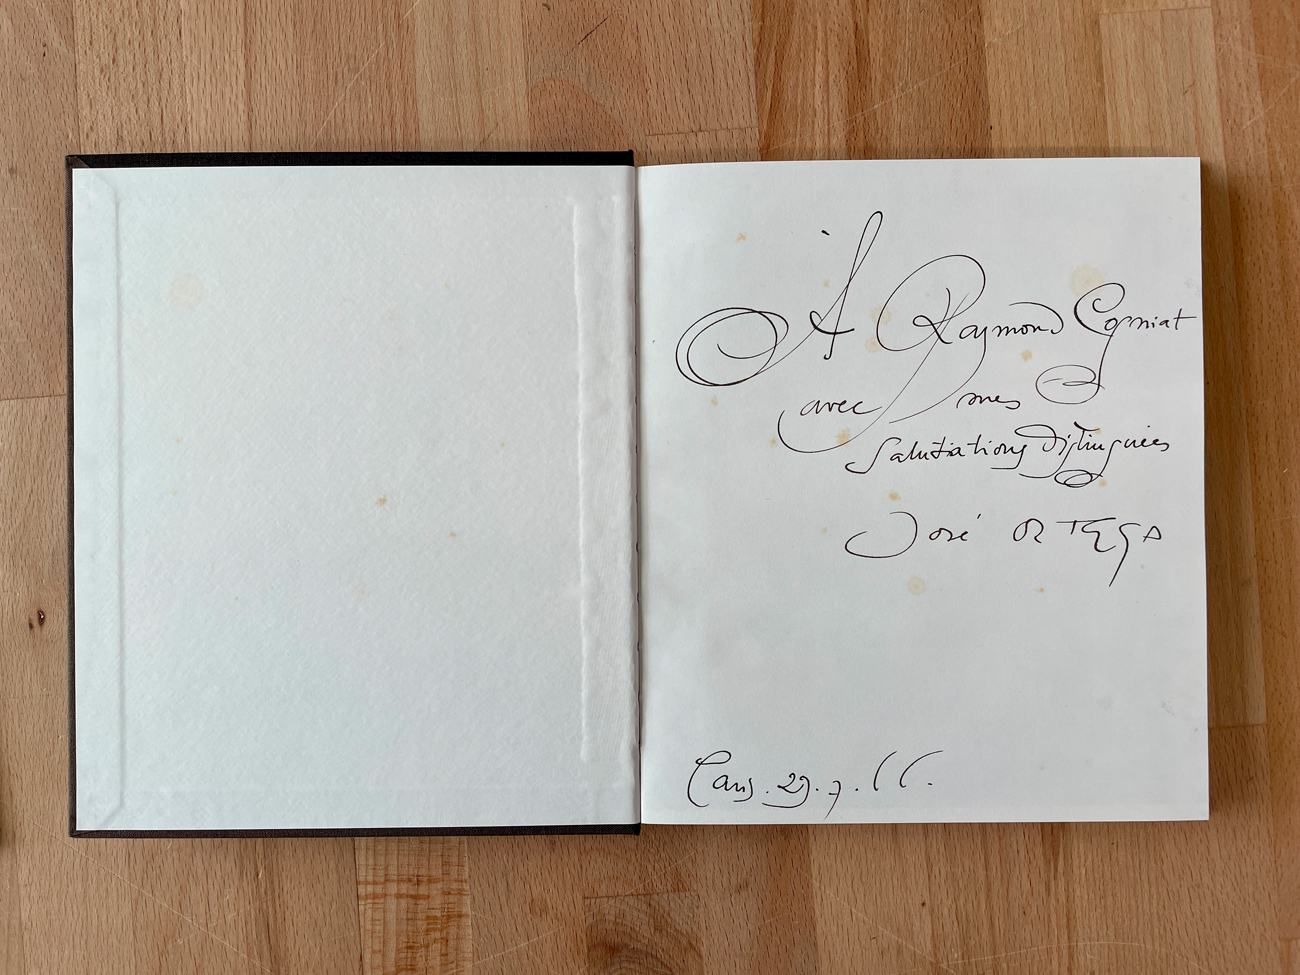 À Raymond Cogniat
avec mes
Salutations Distinguées
José ORTEGA
Paris. 29.7.66.